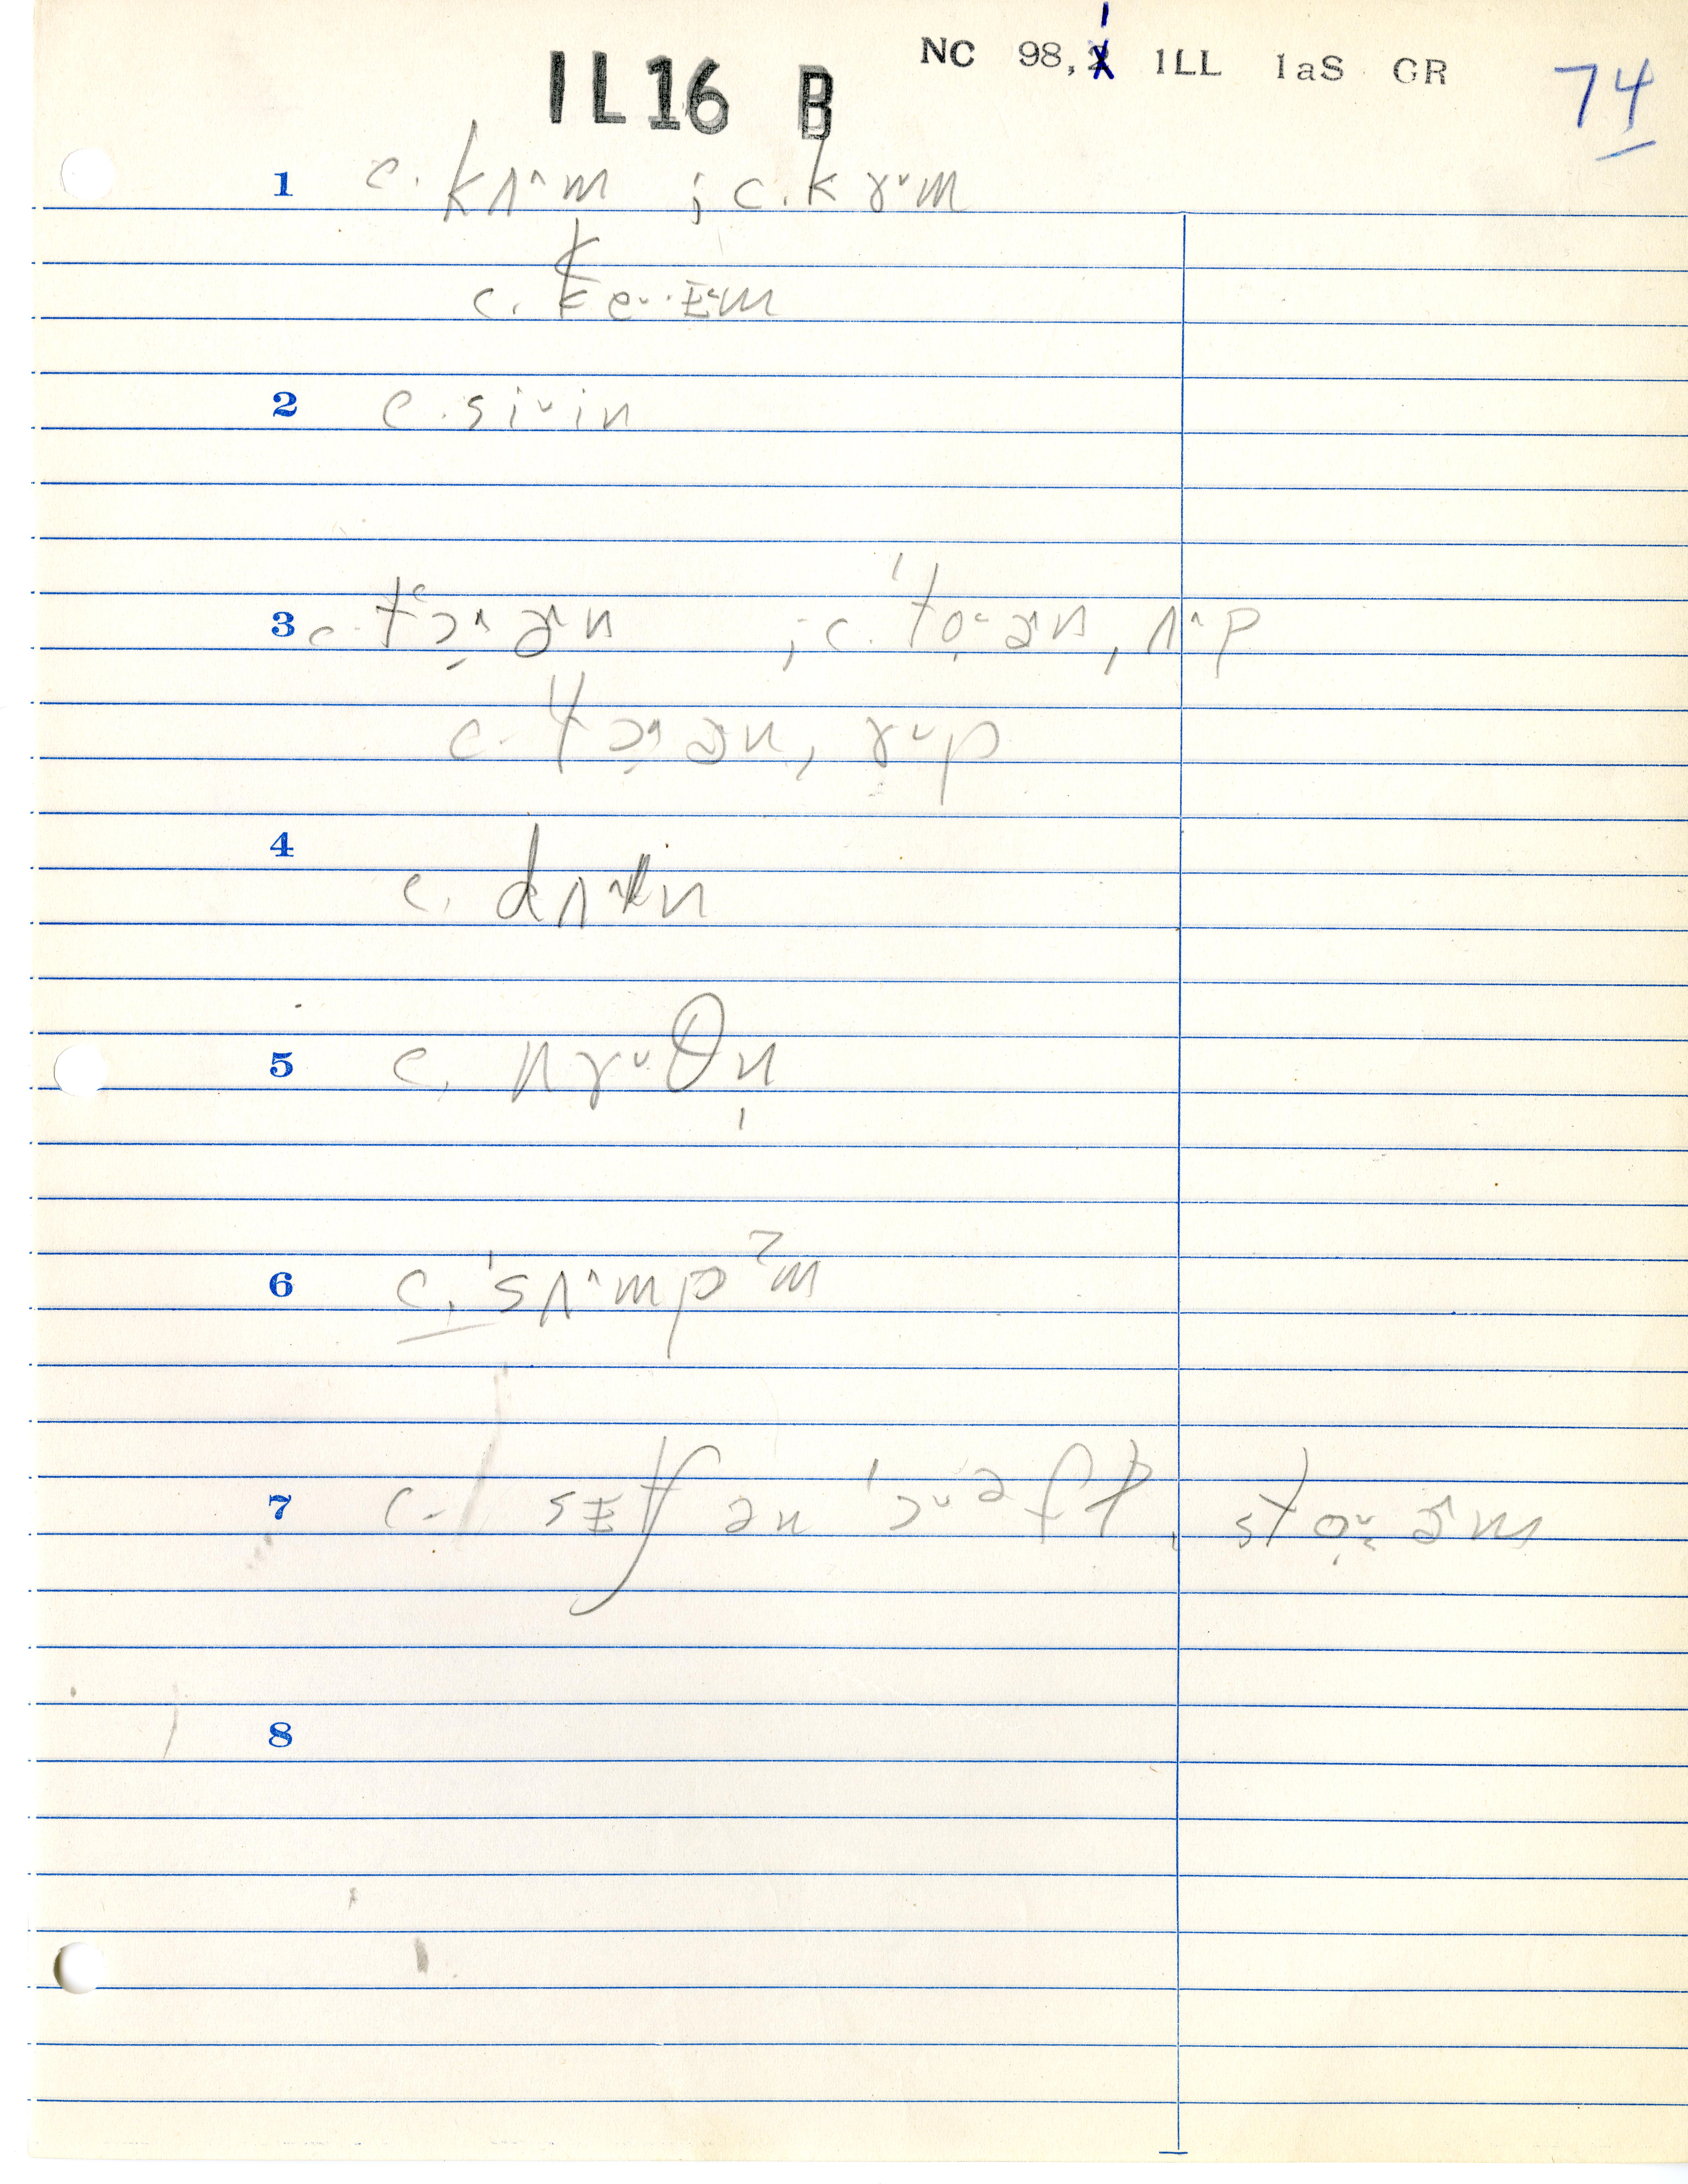 IL16 B NC 98,1 1LL 1aS GR 74
1 c. kʌ^m ; c. kɤ˅m
c. ke˅·ᴇ˂m
2 c. si˅in
3 c. tʻɔ̣^ə^n ; c. ˈtọ˂ə^n, ʌ^p
c. tɔ̣^ən, ɤ˅p
4 c. dʌ^n
5 c. nɤ˅θn̩
6 c. ˈsʌ^mpʔm
7 c. sᴇtf ən ˈɔ˅əft, stọ˅ə^m
8